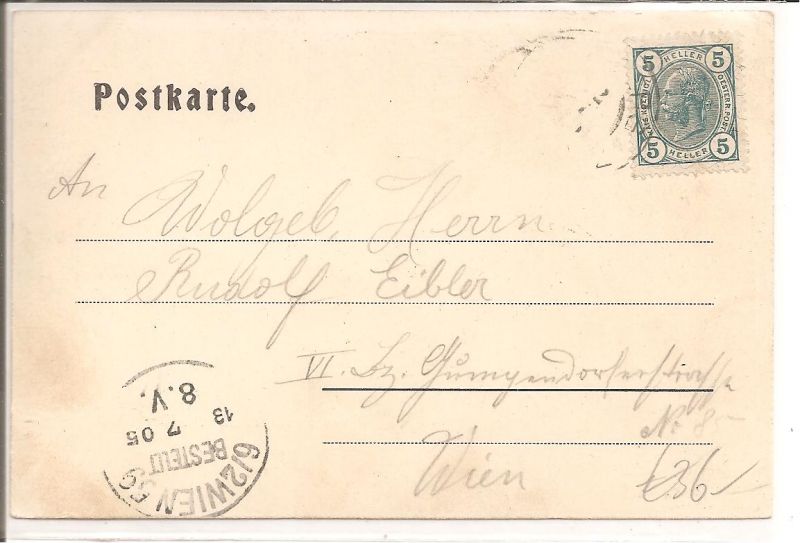 Postkarte.
5 HELLER 5
OESTERR. POST
5 HELLER 5
An
Wolgeb. Herrn
Rudolf Eibler
VI. Bz. Gumpendorferstrasse
No 8
Wien
€36/-
8.V.
13 7 05
BESTELLT
6/2 WIEN 59